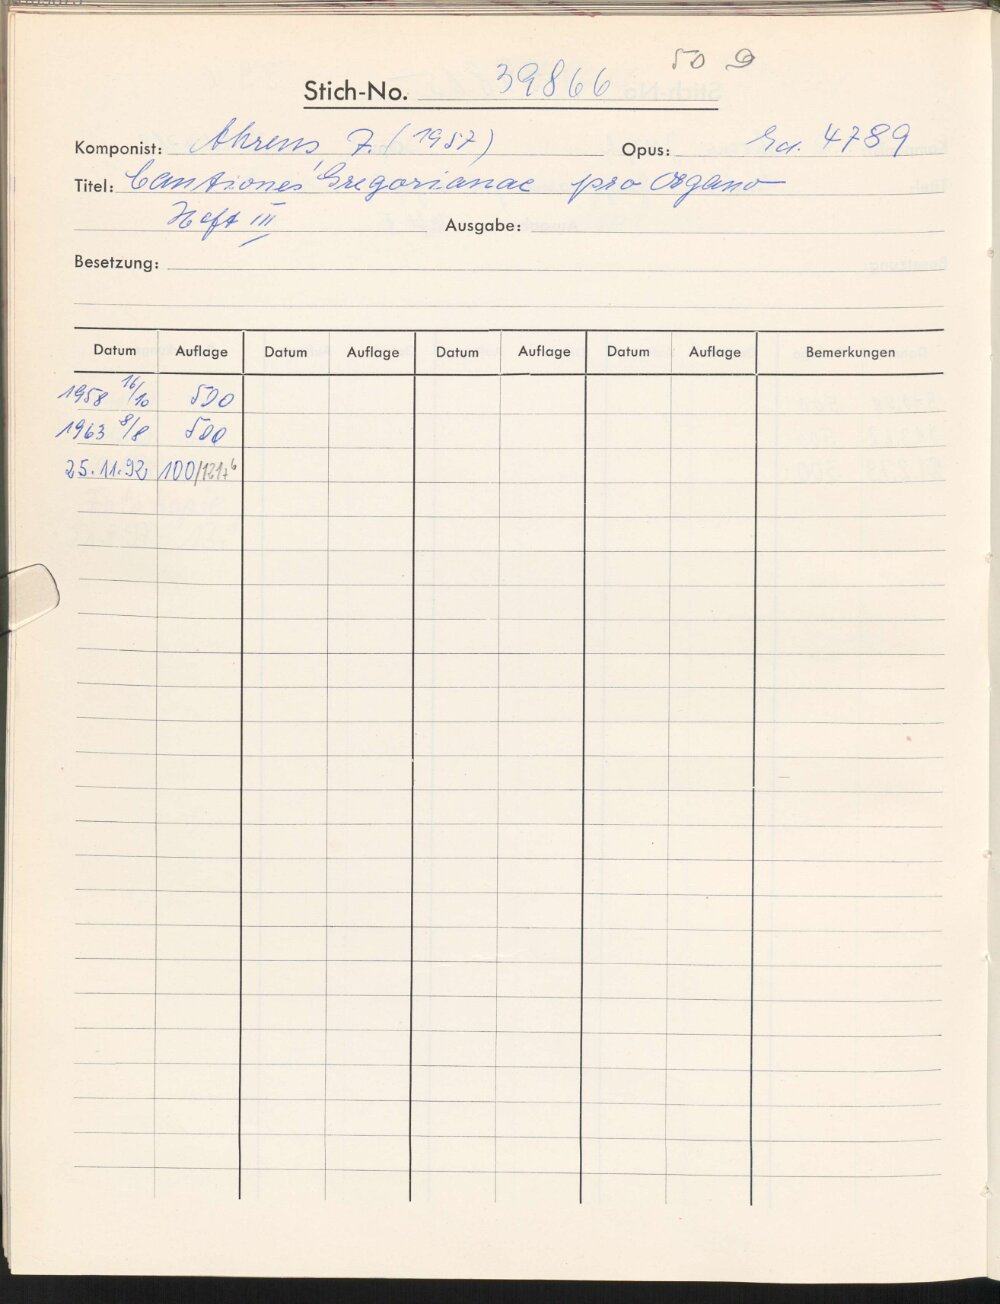 50 9
Stich-No. 39866
Komponist: Ahrens J. (1957) Opus: Ed. 4789
Titel: Cantiones Gregorianae pro Organo
Heft III Ausgabe:
Besetzung:
Datum Auflage Datum Auflage Datum Auflage Datum Auflage Bemerkungen
1958 16/10 500
1963 8/8 500
25.11.92 100/1217